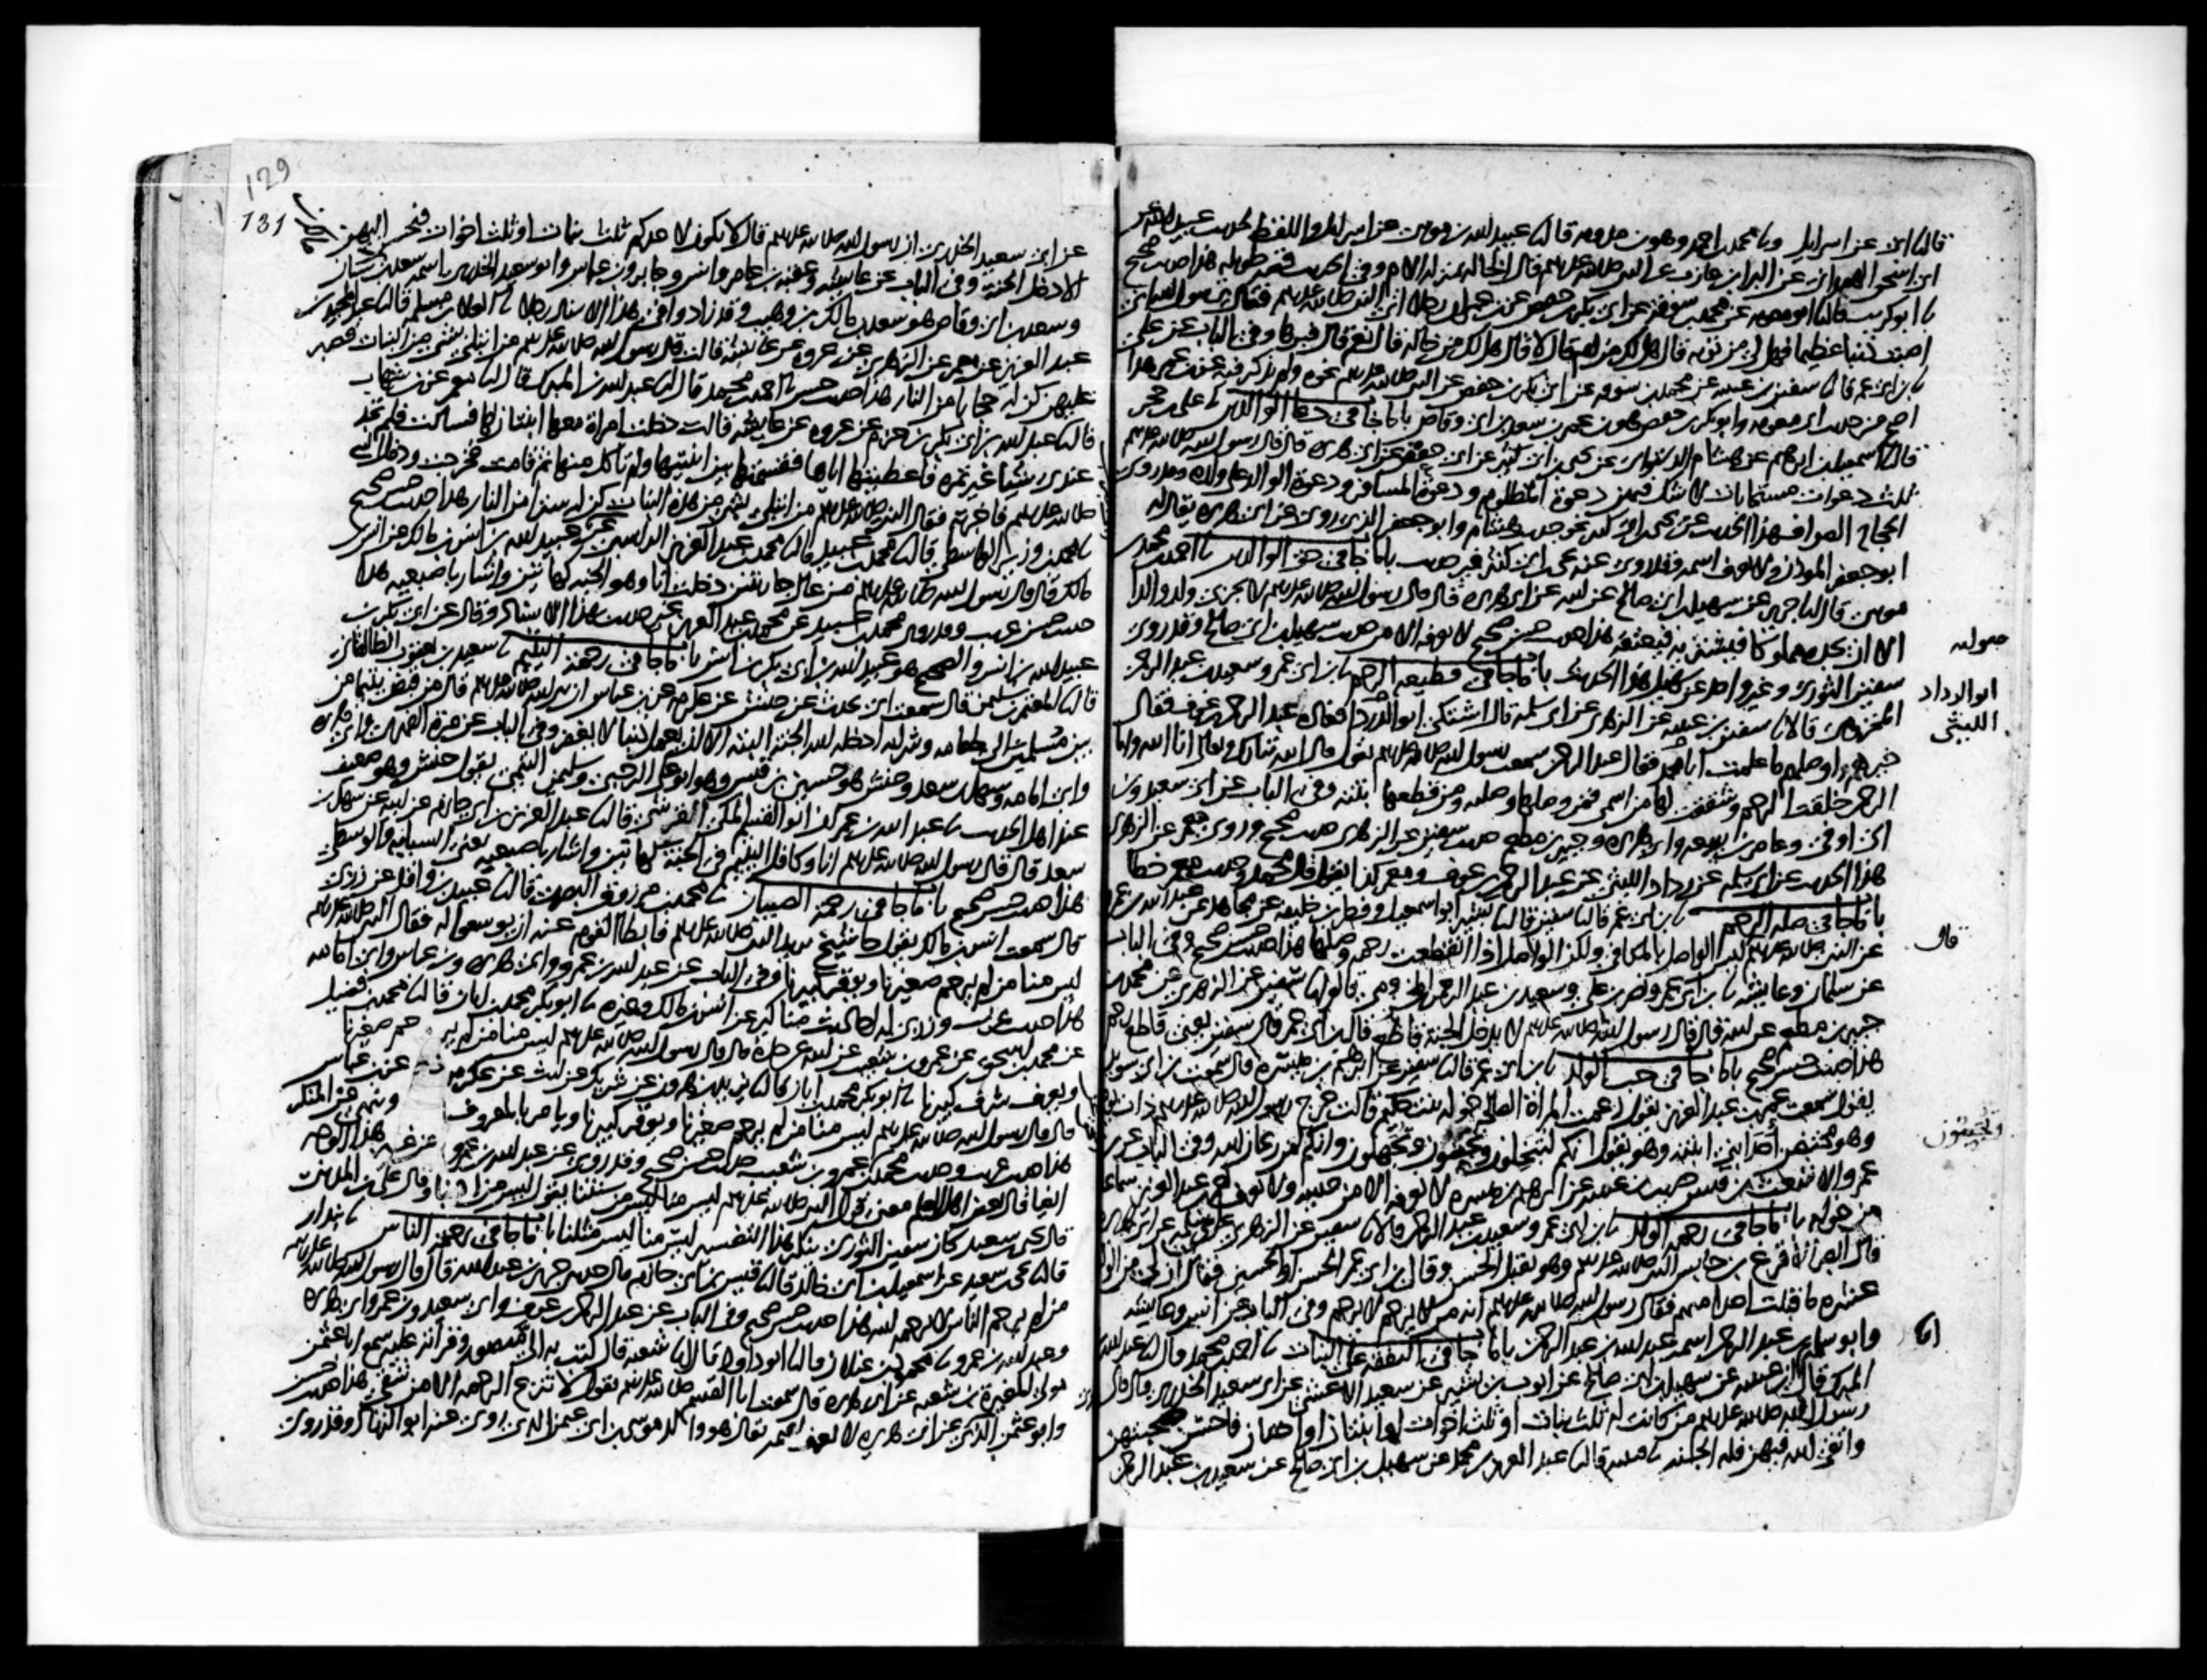 قال نا ابى عن اسرائيل ونا محمد بن احمد وهو بن مدويه قال نا عبيد الله بن موسى عن اسرائيل واللفظ لحديث عبيد الله عن
ابى اسحق الهمدانى عن البراء بن عازب عن النبى صلى الله عليه وسلم قال الخالة بمنزلة الام وفى الحديث قصة طويلة هذا حديث صحيح
نا ابو كريب قال نا ابو معوية عن محمد بن سوقة عن ابى بكر بن حفص عن ابن عمر ان رجلا اتى النبى صلى الله عليه وسلم فقال يرسول الله انى
اصبت ذنبا عظيما فهل لى من توبة قال هل لك من ام قال لا قال هل لك من خالة قال نعم قال فبرها وفى الباب عن على
نا ابن ابى عمر قال نا سفين بن عيينة عن محمد بن سوقة عن ابى بكر بن حفص عن النبى صلى الله عليه وسلم نحوه ولم يذكر فيه عن ابن عمر وهذا
اصح من حديث ابى معوية وابو بكر بن حفص هو بن عمر بن سعد بن ابى وقاص باب ما جا فى دعا الوالدين نا على بن حجر
قال نا اسمعيل بن ابرهيم عن هشام الدستوائى عن يحيى بن ابى كثير عن ابى جعفر عن ابى هريرة قال قال رسول الله صلى الله عليه وسلم
ثلث دعوات مستجابات لا شك فيهن دعوة المظلوم ودعوة المسافر ودعوة الوالد على ولده وقد روى
الحجاج الصواف هذا الحديث عن يحيى بن ابى كثير نحو حديث هشام وابو جعفر الذى روى عن ابى هريرة يقال له
ابو جعفر الموذن ولا نعرف اسمه وقد روى عنه يحيى بن ابى كثير غير حديث باب ما جا فى حق الوالدين نا احمد بن محمد بن
موسى قال نا جرير عن سهيل بن ابى صالح عن ابيه عن ابى هريرة قال قال رسول الله صلى الله عليه وسلم لا يجزى ولد والدا
الا ان يجده مملوكا فيشتريه فيعتقه هذا حديث حسن صحيح لا نعرفه الا من حديث سهيل بن ابى صالح وقد روى
سفين الثورى وغير واحد عن سهيل هذا الحديث باب ما جا فى قطيعة الرحم نا ابن ابى عمر وسعيد بن عبد الرحمن
المخزومى قالا نا سفين بن عيينة عن الزهرى عن ابى سلمة قال اشتكى ابو الدرداء فعاده عبد الرحمن بن عوف فقال
خيرهم واوصلهم ما علمت ابا محمد فقال عبد الرحمن سمعت رسول الله صلى الله عليه وسلم يقول قال الله تبارك وتعالى انا الله وانا
الرحمن خلقت الرحم وشققت لها من اسمى فمن وصلها وصلته ومن قطعها بتته وفى الباب عن ابى سعيد وبن
ابى اوفى وعامر بن ربيعة وابى هريرة وجبير بن مطعم حديث سفين عن الزهرى حديث صحيح وروى معمر عن الزهرى
هذا الحديث عن ابى سلمة عن رداد الليثى عن عبد الرحمن بن عوف ومعمر كذا يقول قال محمد وحديث معمر خطا
باب ما جا فى صلة الرحم نا ابن ابى عمر قال نا سفين قال نا بشير ابو اسمعيل وفطر بن خليفة عن مجاهد عن عبد الله بن عمرو
عن النبى صلى الله عليه وسلم ليس الواصل بالمكافى ولكن الواصل اذا انقطعت رحمه وصلها هذا حديث حسن صحيح وفى الباب
عن سلمان وعايشة نا ابن ابى عمر ونصر بن على وسعيد بن عبد الرحمن المخزومى قالوا نا سفين عن الزهرى عن محمد بن
جبير بن مطعم عن ابيه قال قال رسول الله صلى الله عليه وسلم لا يدخل الجنة قاطع قال ابن ابى عمر قال سفين يعنى قاطع رحم
هذا حديث حسن صحيح باب ما جا فى حب الولد نا ابن ابى عمر قال نا سفين عن ابرهيم بن ميسرة قال سمعت بن ابى سويد
يقول سمعت عمر بن عبد العزيز يقول زعمت المراة الصالحة خولة بنت حكيم قالت خرج رسول الله صلى الله عليه وسلم ذات يوم
وهو محتضن احد ابنى ابنته وهو يقول انكم لتبخلون وتجبنون وتجهلون وانكم لمن ريحان الله وفى الباب عن بن
عمر والاشعث بن قيس حديث بن عيينة عن ابرهيم بن ميسرة لا نعرفه الا من حديثه ولا نعرف لعمر بن عبد العزيز سماعا
من خولة باب ما جا فى رحمة الولد نا ابن ابى عمر وسعيد بن عبد الرحمن قالا نا سفين عن الزهرى عن ابى سلمة عن ابى هريرة
قال ابصر الاقرع بن حابس النبى صلى الله عليه وسلم وهو يقبل الحسن وقال بن ابى عمر الحسن او الحسين فقال ان لى من الولد
عشرة ما قبلت احدا منهم فقال رسول الله صلى الله عليه وسلم انه من لا يرحم لا يرحم وفى الباب عن انس وعايشة
وابو سلمة بن عبد الرحمن اسمه عبد الله بن عبد الرحمن باب ما جا فى النفقة على البنات نا احمد بن محمد قال نا عبد الله بن
المبرك قال نا بن عيينة عن سهيل بن ابى صالح عن ايوب بن بشير عن سعيد الاعشى عن ابى سعيد الخدرى قال قال
رسول الله صلى الله عليه وسلم من كانت له ثلث بنات او ثلث اخوات او ابنتان او اختان فاحسن صحبتهن
واتقى الله فيهن فله الجنة نا قتيبة قال نا عبد العزيز بن محمد عن سهيل بن ابى صالح عن سعيد بن عبد الرحمن
ابو الرداد
الليثى
قال
وتجبنون
129
131
عن ابى سعيد الخدرى ان رسول الله صلى الله عليه وسلم قال لا يكون لاحدكم ثلث بنات او ثلث اخوات فيحسن اليهن
الا دخل الجنة وفى الباب عن عايشة وعقبة بن عامر وانس وجابر وبن عباس وابو سعيد الخدرى اسمه سعد بن ملك بن سنان
وسعد بن ابى وقاص هو سعد بن مالك بن وهيب وقد زادوا فى هذا الاسناد رجلا نا العلا بن مسلمة قال نا عبد المجيد بن
عبد العزيز عن معمر عن الزهرى عن عروة عن عايشة قالت قال رسول الله صلى الله عليه وسلم من ابتلى بشى من البنات فصبر
عليهن كن له حجابا من النار هذا حديث حسن نا احمد بن محمد قال نا عبد الله بن المبرك قال نا معمر عن بن شهاب
قال نا عبد الله بن ابى بكر بن حزم عن عروة عن عايشة قالت دخلت امراة معها ابنتان لها فسالت فلم تجد
عندى شيا غير تمرة فاعطيتها اياها فقسمتها بين ابنتيها ولم تاكل منها ثم قامت فخرجت ودخل النبى
صلى الله عليه وسلم فاخبرته فقال النبى صلى الله عليه وسلم من ابتلى بشى من هذه البنات كن له سترا من النار هذا حديث حسن صحيح
نا محمد بن وزير الواسطى قال نا محمد بن عبيد قال نا محمد بن عبد العزيز الراسبى عن ابى بكر بن عبيد الله بن انس بن مالك عن انس بن
مالك قال قال رسول الله صلى الله عليه وسلم من عال جاريتين دخلت انا وهو الجنة كهاتين واشار باصبعيه هذا
حديث حسن غريب وقد روى محمد بن عبيد عن محمد بن عبد العزيز غير حديث بهذا الاسناد وقال عن ابى بكر بن
عبيد الله بن انس والصحيح هو عبيد الله بن ابى بكر بن انس باب ما جا فى رحمة اليتيم نا سعيد بن يعقوب الطالقانى
قال نا المعتمر بن سليمن قال سمعت ابى يحدث عن حنش عن عكرمة عن بن عباس ان نبى الله صلى الله عليه وسلم قال من قبض يتيما من
بين مسلمين الى طعامه وشرابه ادخله الله الجنة البتة الا ان يعمل ذنبا لا يغفر وفى الباب عن مرة الفهرى وابى هريرة
وابى امامة وسهل بن سعد وحنش هو حسين بن قيس وهو ابو على الرحبى وسليمن التيمى يقول حنش وهو ضعيف
عند اهل الحديث نا عبد الله بن عمران ابو القسم المكى القرشى قال نا عبد العزيز بن ابى حازم عن ابيه عن سهل بن
سعد قال قال رسول الله صلى الله عليه وسلم انا وكافل اليتيم فى الجنة كهاتين واشار باصبعيه يعنى السبابة والوسطى
هذا حديث حسن صحيح باب ما جا فى رحمة الصبيان نا محمد بن مرزوق البصرى قال نا عبيد بن واقد عن زربى
قال سمعت انس بن مالك يقول جا شيخ يريد النبى صلى الله عليه وسلم فابطا القوم عنه ان يوسعوا له فقال النبى صلى الله عليه وسلم
ليس منا من لم يرحم صغيرنا ويوقر كبيرنا وفى الباب عن عبد الله بن عمرو وابى هريرة وبن عباس وابى امامة
هذا حديث غريب وزربى له احاديث مناكير عن انس بن مالك وغيره نا ابو بكر محمد بن ابان قال نا محمد بن فضيل
عن محمد بن اسحق عن عمرو بن شعيب عن ابيه عن جده قال قال رسول الله صلى الله عليه وسلم ليس منا من لم يرحم صغيرنا
ويعرف شرف كبيرنا نا ابو بكر محمد بن ابان قال نا يزيد بن هرون عن شريك عن ليث عن عكرمة عن بن عباس
قال قال رسول الله صلى الله عليه وسلم ليس منا من لم يرحم صغيرنا ويوقر كبيرنا ويامر بالمعروف وينهى عن المنكر
هذا حديث غريب وحديث محمد بن عمرو بن شعيب حديث حسن صحيح وقد روى عن عبد الله بن عمرو من غير هذا الوجه
ايضا قال بعض اهل العلم معنى قول النبى صلى الله عليه وسلم ليس منا ليس من سنتنا يقول ليس من ادبنا وقال على بن المدينى
قال يحيى بن سعيد كان سفين الثورى ينكر هذا التفسير ليس منا ليس مثلنا باب ما جا فى رحمة الناس نا بندار
قال نا يحيى بن سعيد عن اسمعيل بن ابى خالد قال نا قيس بن ابى حازم قال حدثنى جرير بن عبد الله قال قال رسول الله صلى الله عليه وسلم
من لم يرحم الناس لا يرحمه الله هذا حديث حسن صحيح وفى الباب عن عبد الرحمن بن عوف وابى سعيد وبن عمر وابى هريرة
وعبد الله بن عمرو نا محمود بن غيلان قال نا ابو داود قال نا شعبة قال كتب به الى منصور وقراته عليه سمع ابا عثمن
مولى المغيرة بن شعبة عن ابى هريرة قال سمعت ابا القسم صلى الله عليه وسلم يقول لا تنزع الرحمة الا من شقى هذا حديث حسن
وابو عثمن الذى روى عن ابى هريرة لا نعرف اسمه يقال هو والد موسى بن ابى عثمن الذى روى عنه ابو الزناد وقد روى